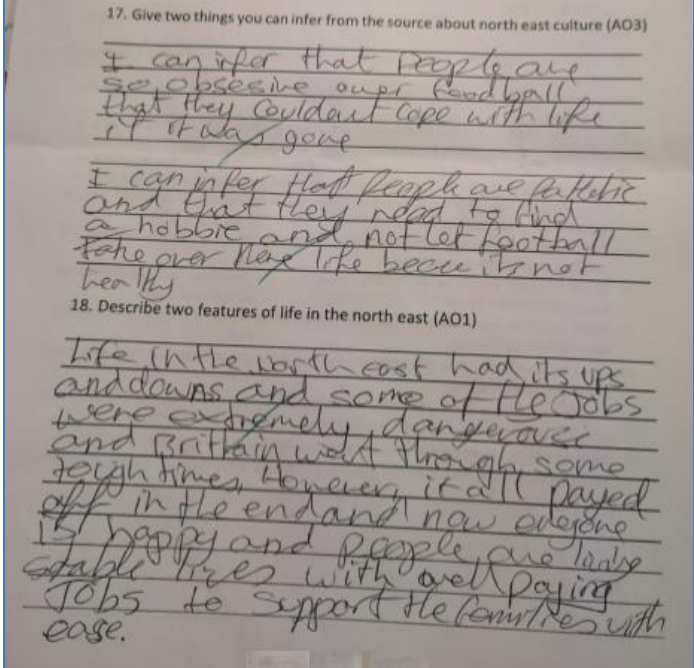 17. Give two things you can infer from the source about north east culture (AO3)
I can infer that People are
so obsesive over foodball
that they couldant cope with life
if it was gone
I can infer that People are Pathetic
and that they need to find
a hobbie and not let football
take over there life becue its not
healthy
18. Describe two features of life in the north east (AO1)
Life in the north east had its ups
and downs and some of the Jobs
were extremely dangerous
and Brittain went through some
tough times, However, it all payed
off in the end and now everyone
is happy and People are living
stable lives with well paying
Jobs to support the families with
ease.